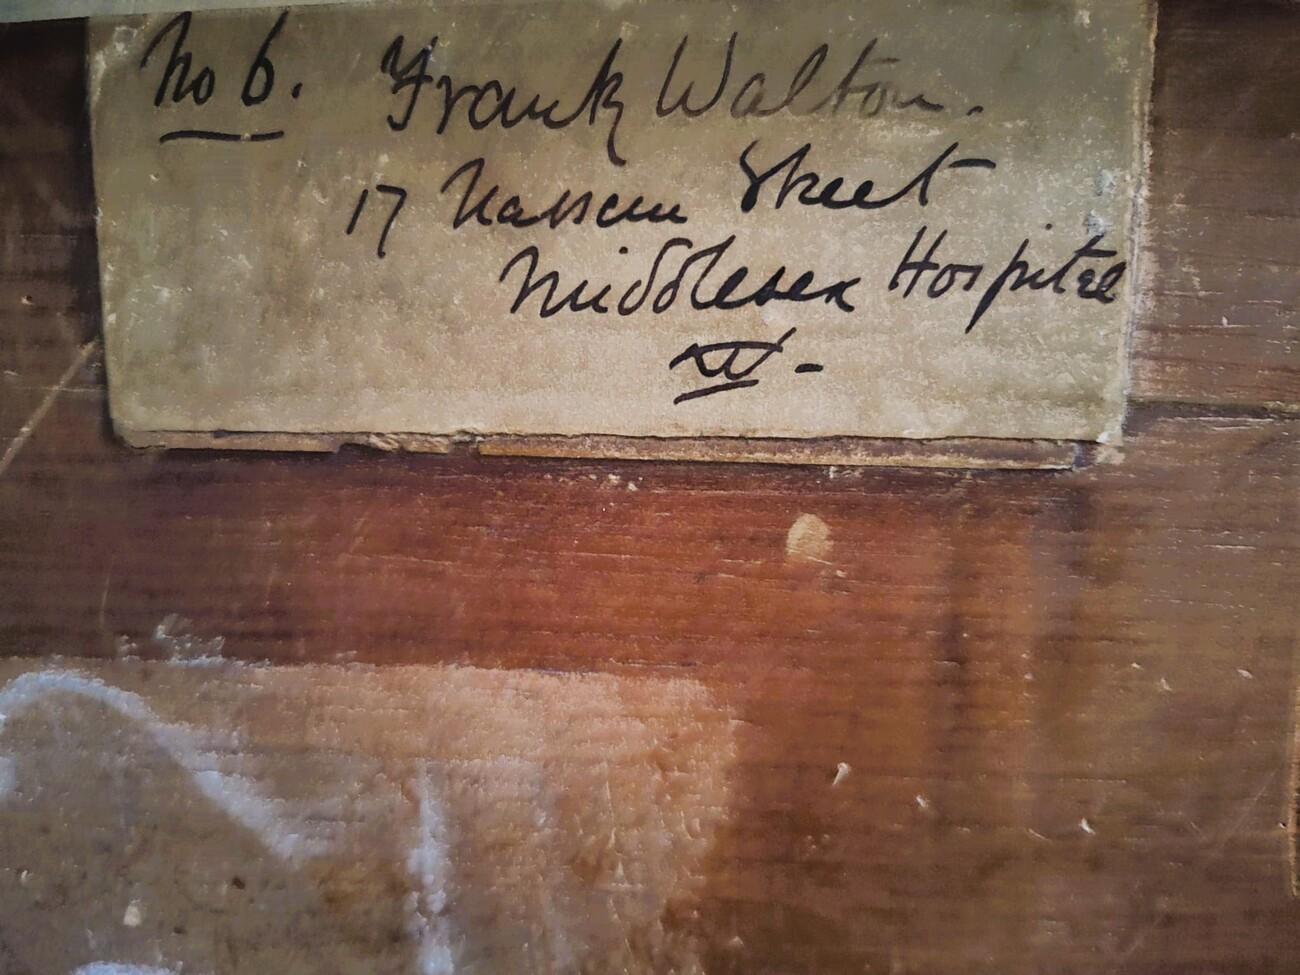 No 6. Frank Walton.
17 Nassau Street
Middlesex Hospital
W -